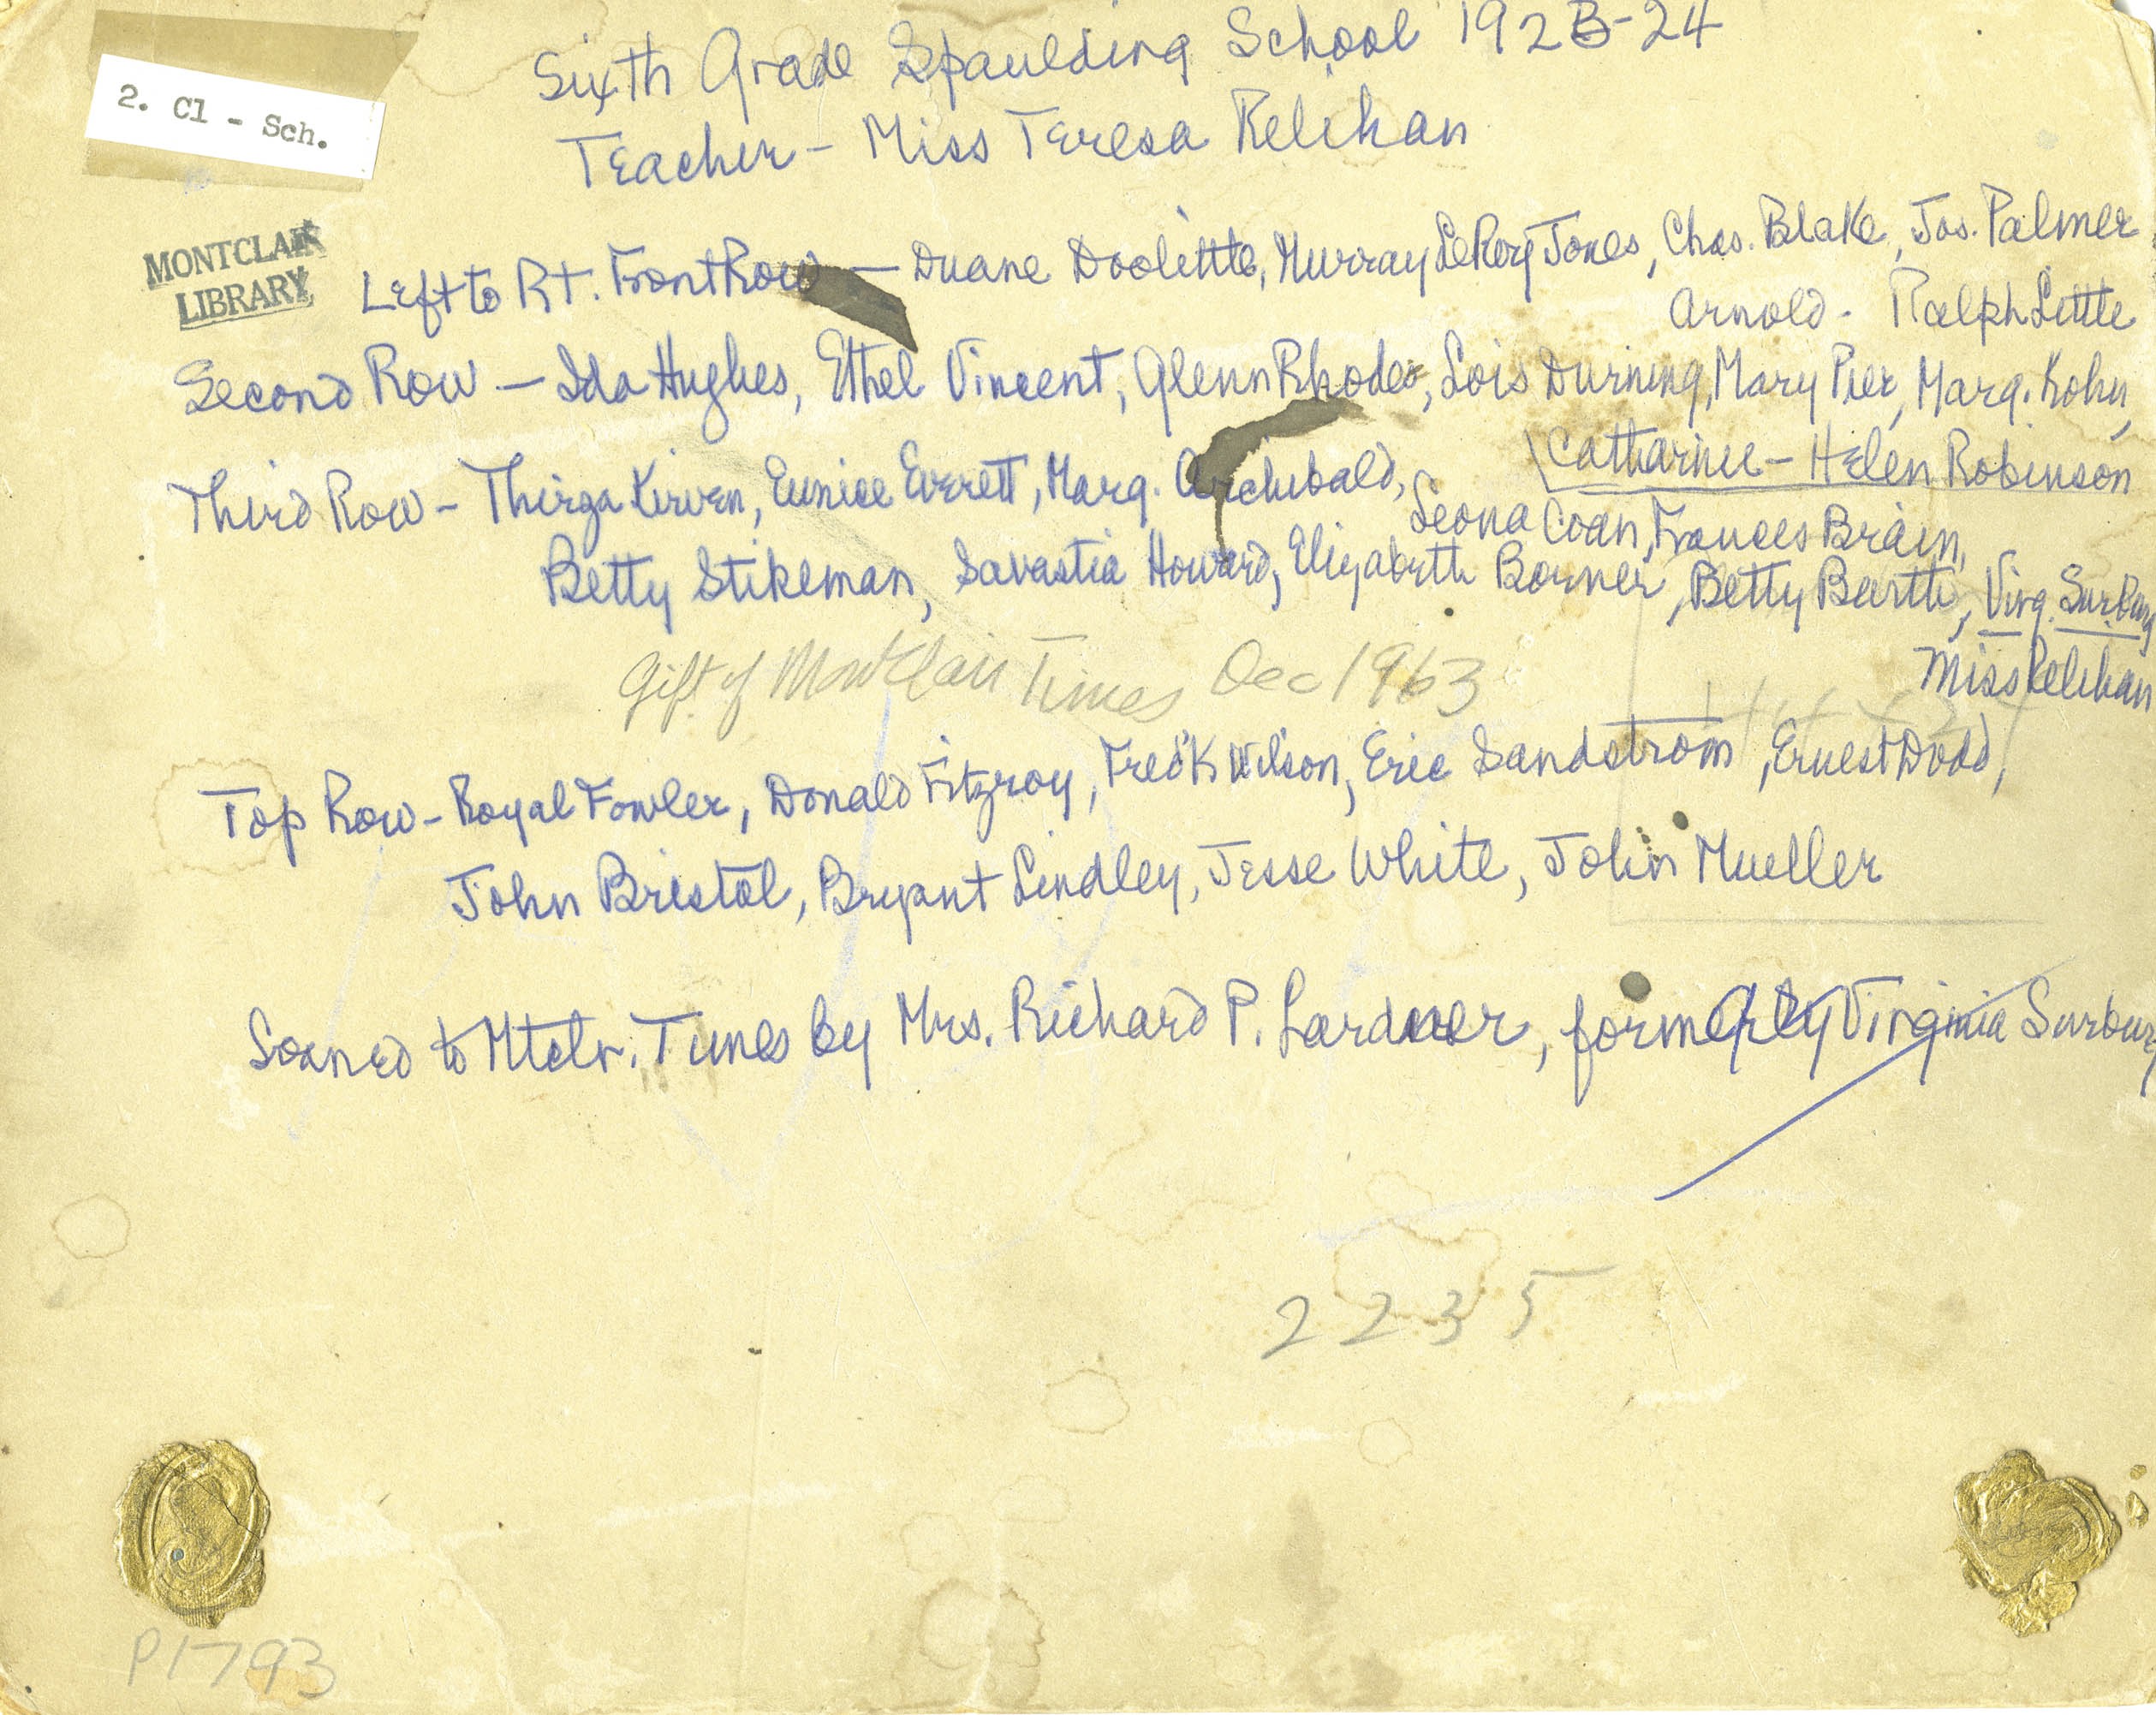 Sixth Grade Spaulding School 1923-24
2. Cl - Sch.
Teacher - Miss Teresa Relihan
MONTCLAIR
LIBRARY
Left to Rt. Front Row - Duane Doolittle, Murray LeRoy Jones, Chas. Blake, Jos. Palmer
Arnold - Ralph Little
Second Row - Ida Hughes, Ethel Vincent, Glenn Rhodes, Lois Durning, Mary Pier, Marg. Kohn,
Catharine - Helen Robinson
Third Row - Thirza Kirven, Eunice Everett, Marg. Archibald,
Leona Coan, Frances Brain,
Betty Stikeman, Savastia Howard, Elizabeth Borner, Betty Barth, Virg. Surbury
Miss Relihan
Gift of Montclair Times Dec 1963
Top Row - Royal Fowler, Donald Fitzroy, Fred'k Wilson, Eric Sandstrom, Ernest Dodd,
John Bristol, Bryant Lindley, Jesse White, John Mueller
Loaned to Mtclr. Times by Mrs. Richard P. Lardner, formerly Virginia Surbury
2235
P1793